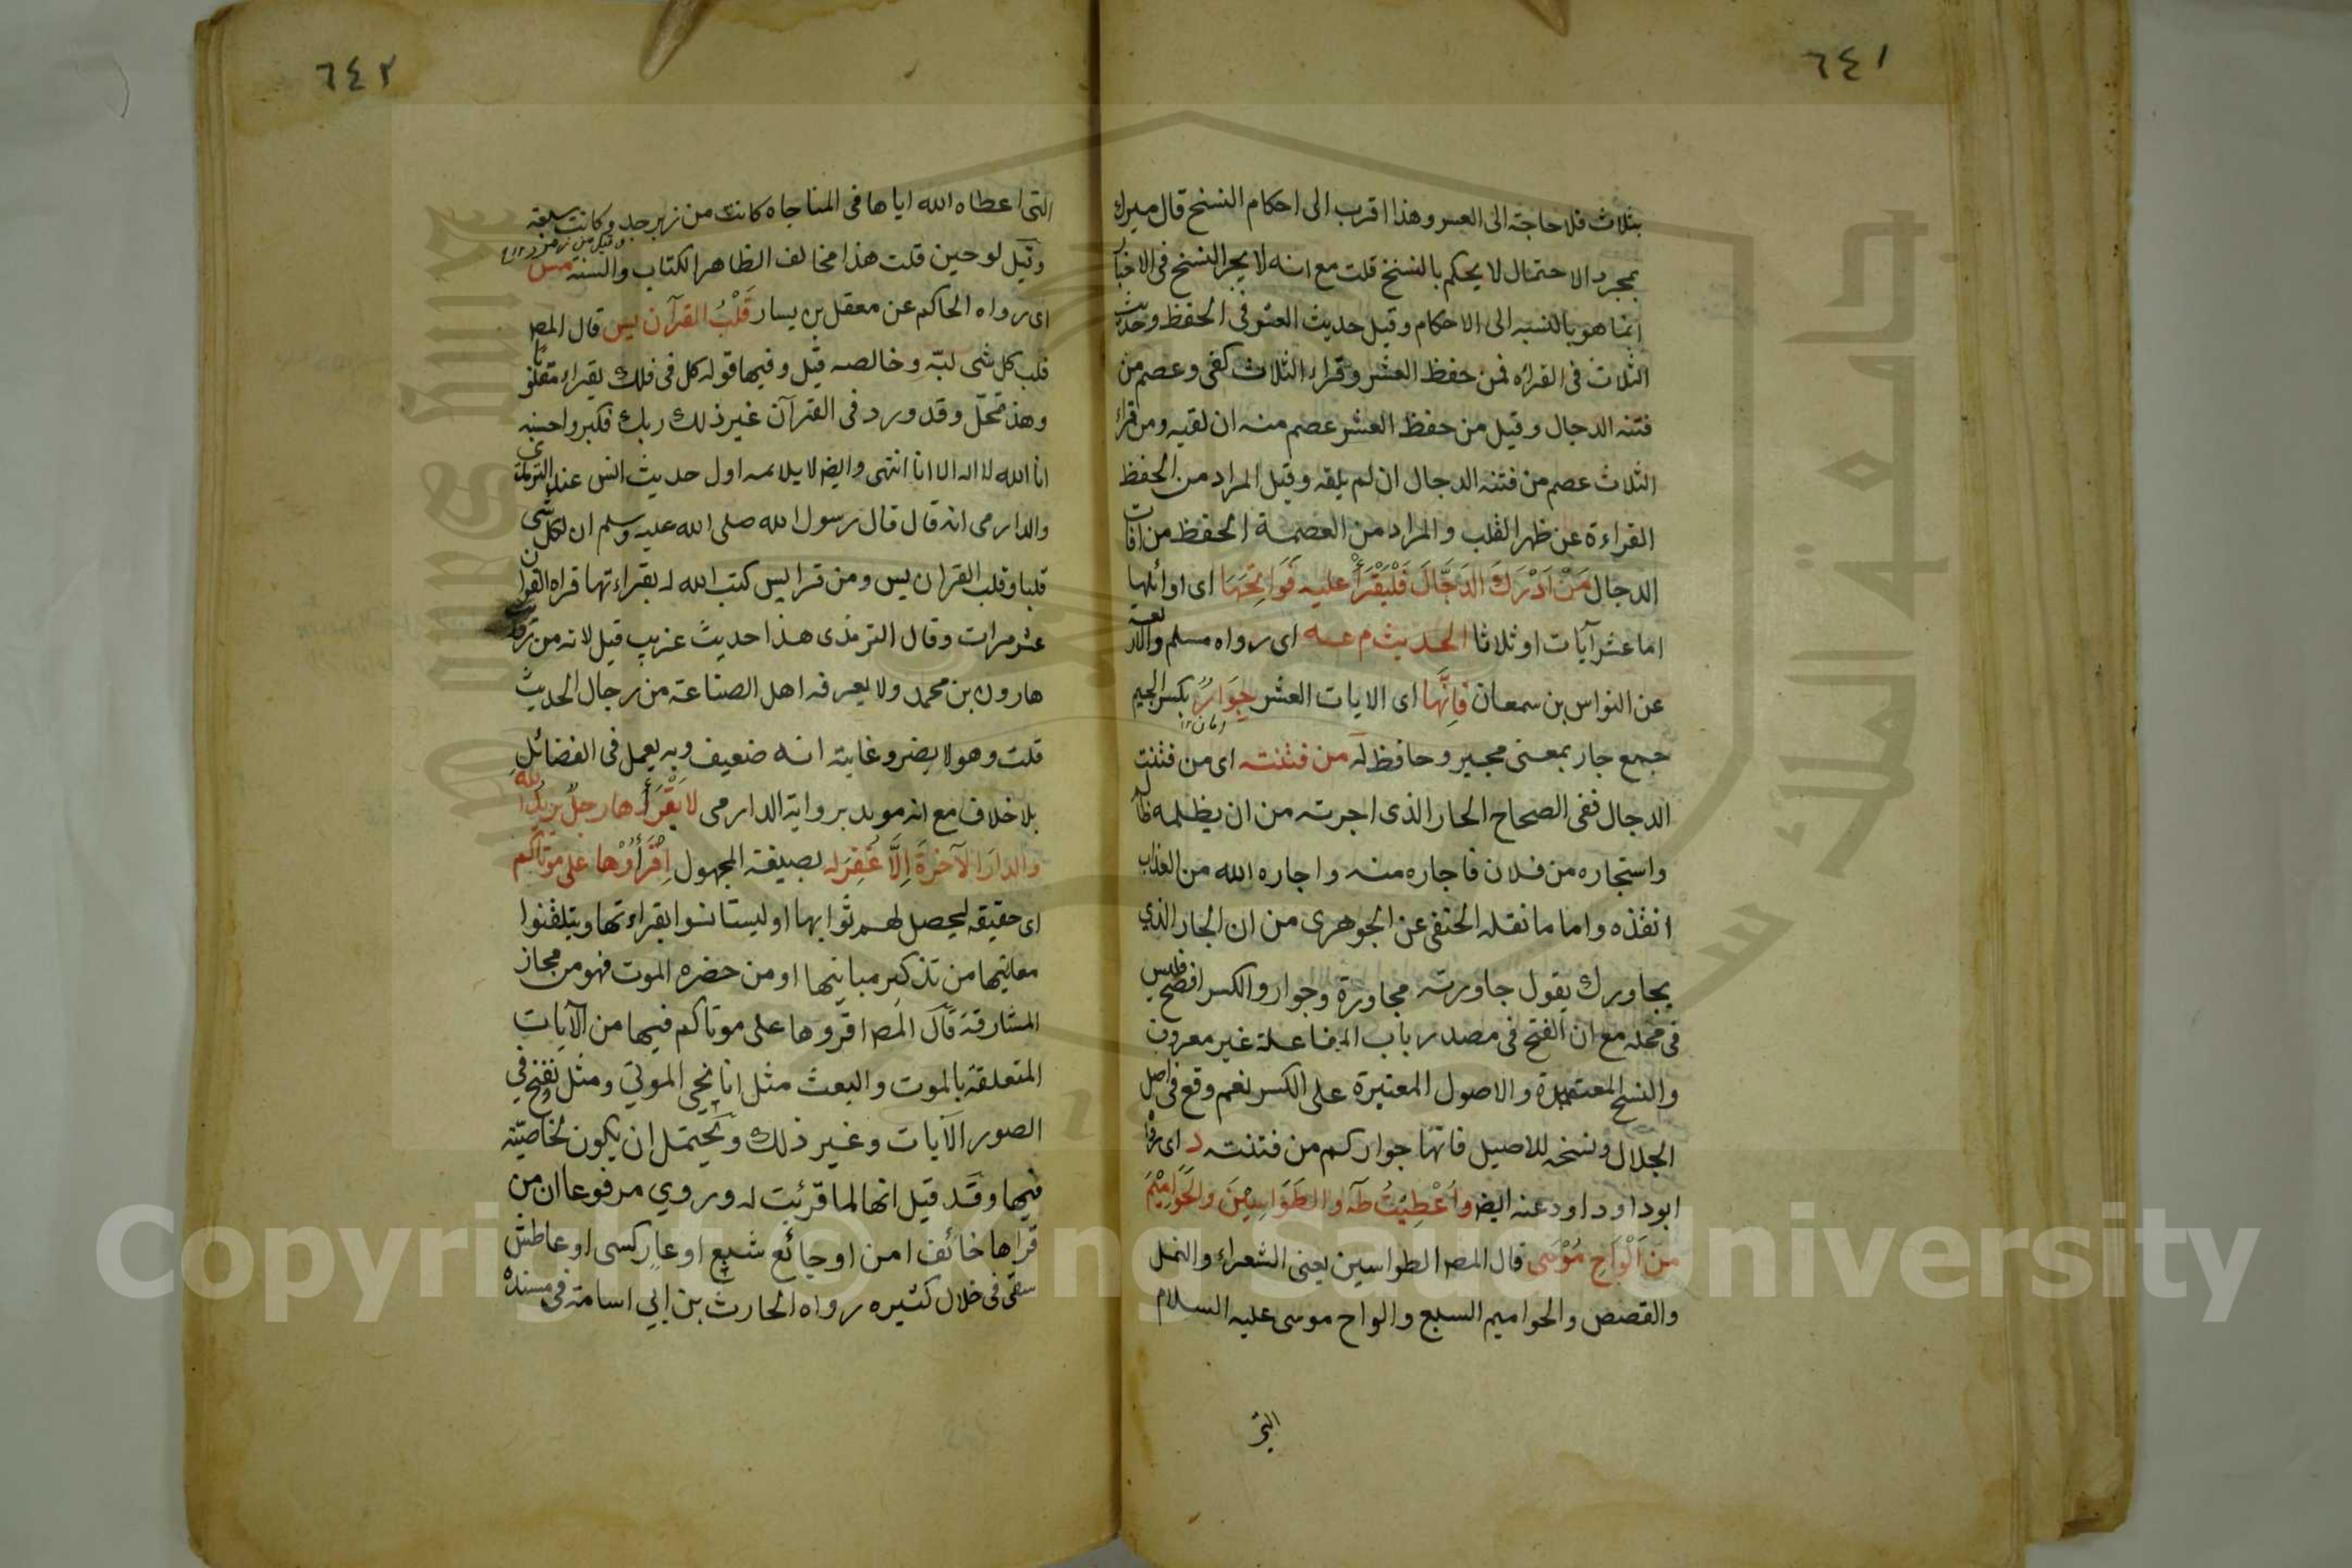 ٦٤١
بثلاث فلا حاجة الى العسر وهذا اقرب الى احكام النسخ قال ميرك
بمجرد الاحتمال لا يحكم بالنسخ قلت مع انه لا يجر النسخ فى الاخبار
انما هو بالنسبه الى الاحكام وقيل حديث العشر فى الحفظ وحديث
الثلاث فى القراه فمن حفظ العشر وقراء الثلاث كفى وعصم من
فتنه الدجال وقيل من حفظ العشر عصم منه ان لقيه ومن قراء
الثلاث عصم من فتنه الدجال ان لم يلقه وقيل المراد من الحفظ
القراءة عن ظهر القلب والمراد من العصمة الحفظ من افات
الدجال مَنْ اَدْرَكَ الدَجَّالَ فَلْيَقْرَأْ عليه فَوَاتِحَهَا اى اوائلها
اما عشر آيات او ثلاثا الحديث م عه اى رواه مسلم والاربعة
عن النواس بن سمعان فَاِنَّهَا اى الايات العشر جِوَارٌ بكسر الجيم
امان ١٢
جمع جار بمعنى مجير وحافظ له من فتنته اى من فتنت
الدجال ففى الصحاح الجار الذى اجرته من ان يظلمه
واستجاره من فلان فاجاره منه واجاره الله من العذاب
انقذه واما ما نقله الحنفى عن الجوهرى من ان الجار الذي
يجاورك يقول جاورته مجاورة وجوار والكسر افصح فليس
فى محله مع ان الفتح فى مصدر باب المفاعلة غير معروف
والنسخ المعتمدة والاصول المعتبرة على الكسر نعم وقع فى اصل
الجلال ونسخه للاصيل فانها جواركم من فتنته د اى رواه
ابو داود اود عنه ايضا واُعْطِيْتُ طه والطَوَاسِيْنَ والحَوَامِيْمَ
مِنْ اَلْوَاحِ مُوْسَى قال المصـ الطواسين يعنى الشعراء والنمل
والقصص والحواميم السبع والواح موسى عليه السلام
التى
٦٤٢
التى اعطاه الله اياها فى المناجاه كانت من زبرجد وكانت سبعة
وقيل من زمرد ١٢
وقيل لوحين قلت هذا مخالف الظاهر الكتاب والسنة مس
اى رواه الحاكم عن معقل بن يسار قَلْبُ القرآن يس قال المصـ
قلب كل شى لبّه وخالصه قيل وفيها قوله كل فى فلك يقراء مقلوبا
وهذ تمحّل وقد ورد فى القرآن غير ذلك ربك فكبر واحسنه
انا الله لا اله الا انا انتهى وايضا لا يلائمه اول حديث انس عند الترمذى
والدارمى انه قال قال رسول الله صلى الله عليه وسلم ان لكل شى
قلبا وقلب القران يس ومن قرا يس كتب الله له بقراءتها قراه القران
عشر مرات وقال الترمذى هذا حديث غريب قيل لانه من
هارون بن محمد ولا يعرفه اهل الصناعة من رجال الحديث
قلت وهو لا يضر وغايته انه ضعيف وبه يعمل فى الفضائل
بلا خلاف مع انه مويد برواية الدارمى لا يَقْرَأُ هارجلٌ يريدُ اللهَ
والدارَ الآخرةَ اِلَّا غُفِرَ له بصيغة المجهول اِقْرَأُوْها على موتاكم
اى حقيقه ليحصل لهم ثوابها او ليستانسوا بقراءتها ويتلقنوا
معانيها من تذكير مبانيها او من حضره الموت فهو من مجاز
المشارقة قال المصـ اقروها على موتاكم فيها من الآيات
المتعلقة بالموت والبعث مثل انا نحي الموتي ومثل ونفخ في
الصور الآيات وغير ذلك ويحتمل ان يكون لخاصيّة
فيها وقد قيل انها لما قرئت له وروي مرفوعا ان من
قراها خائف امن او جائع شبع او عار كسى او عاطش
سقى فى خلال كثيره رواه الحارث بن ابي اسامة فى مسنده
Copyright © King Saud University
جامعة الملك سعود